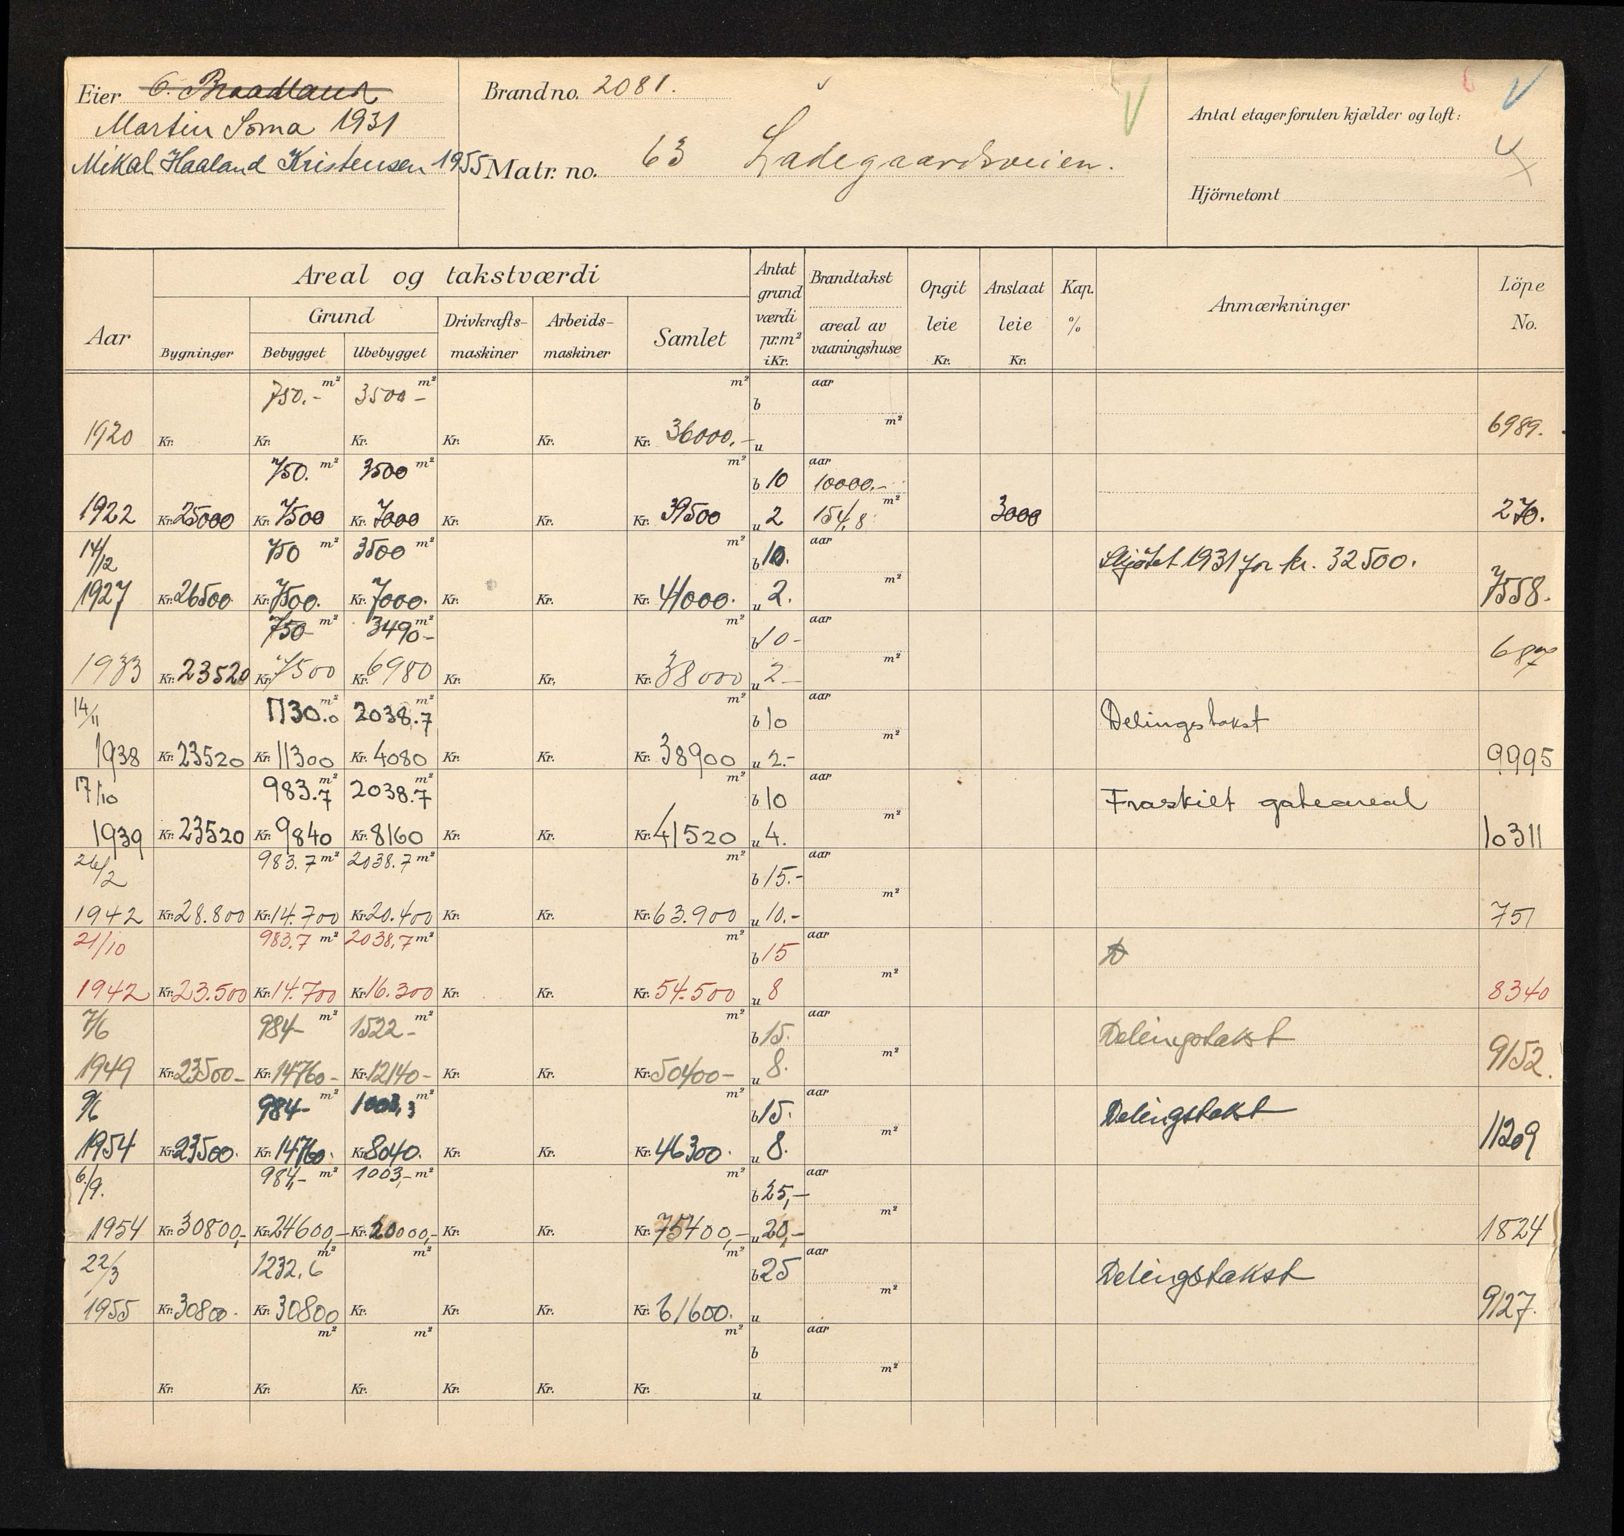 Eier C. Braadland
Martin Soma 1931
Mikal Haaland Kristensen 1955
Brand no. 2081.
Matr. no. 63 Ladegaardsveien.
Antal etager foruten kjælder og loft:
Hjörnetomt
Aar
Areal og takstværdi
Bygninger
Grund
Bebygget Ubebygget
Drivkrafts-maskiner
Arbeids-maskiner
Samlet
Antat grund værdi pr. m² i Kr.
Brandtakst
areal av vaaningshuse
Opgit leie Kr.
Anslaat leie Kr.
Kap. %
Anmærkninger
Löpe No.
750.- m² 3500- m² m² b aar m²
1920 Kr. Kr. Kr. Kr. Kr. Kr. 36000,- u 6989.
750. m² 3500 m² m² b 10 aar 10000.-
1922 Kr. 25000 Kr. 7500 Kr. 7000 Kr. Kr. Kr. 39500 u 2 154,8 m² 3000 270.
14/12 750 m² 3500 m² m² b 10. aar Skjötet 1931 for kr. 32500.
1927 Kr. 26500. Kr. 7500. Kr. 7000. Kr. Kr. Kr. 41000. u 2. m² 7558.
750- m² 3490- m² m² b 10- aar
1933 Kr. 23520 Kr. 7500 Kr. 6980 Kr. Kr. Kr. 38000 u 2- m² 687
14/11 1130.0 m² 2038.7 m² m² b 10 aar Delingstakst
1938 Kr. 23520 Kr. 11300 Kr. 4080 Kr. Kr. Kr. 38900 u 2.- m² 9995
17/10 983.7 m² 2038.7 m² m² b 10 aar Fraskilt gateareal
1939 Kr. 23520 Kr. 9840 Kr. 8160 Kr. Kr. Kr. 41520 u 4. m² 10311
26/2 983.7 m² 2038.7 m² m² b 15.- aar
1942 Kr. 28.800 Kr. 14.700 Kr. 20.400 Kr. Kr. Kr. 63.900 u 10.- m² 751
21/10 983.7 m² 2038.7 m² m² b 15 aar
1942 Kr. 23.500 Kr. 14.700 Kr. 16.300 Kr. Kr. Kr. 54.500 u 8 m² 8340
7/6 984- m² 1522- m² m² b 15. aar Delingstakst
1949 Kr. 23500- Kr. 14760- Kr. 12140- Kr. Kr. Kr. 50400- u 8. m² 9152.
9/6 984- m² 1003,3 m² m² b 15. aar Delingstakst
1954 Kr. 23500. Kr. 14760. Kr. 8040. Kr. Kr. Kr. 46300. u 8. m² 11209
6/9. 984,- m² 1003,- m² m² b 25,- aar
1954 Kr. 30800,- Kr. 24600,- Kr. 20000,- Kr. Kr. Kr. 75400,- u 20,- m² 1824
22/3 1232.6 m² m² m² b 25 aar Delingstakst
1955 Kr. 30800. Kr. 30800 Kr. Kr. Kr. Kr. 61600. u m² 9127.
m² m² m² b aar
Kr. Kr. Kr. Kr. Kr. Kr. u m²